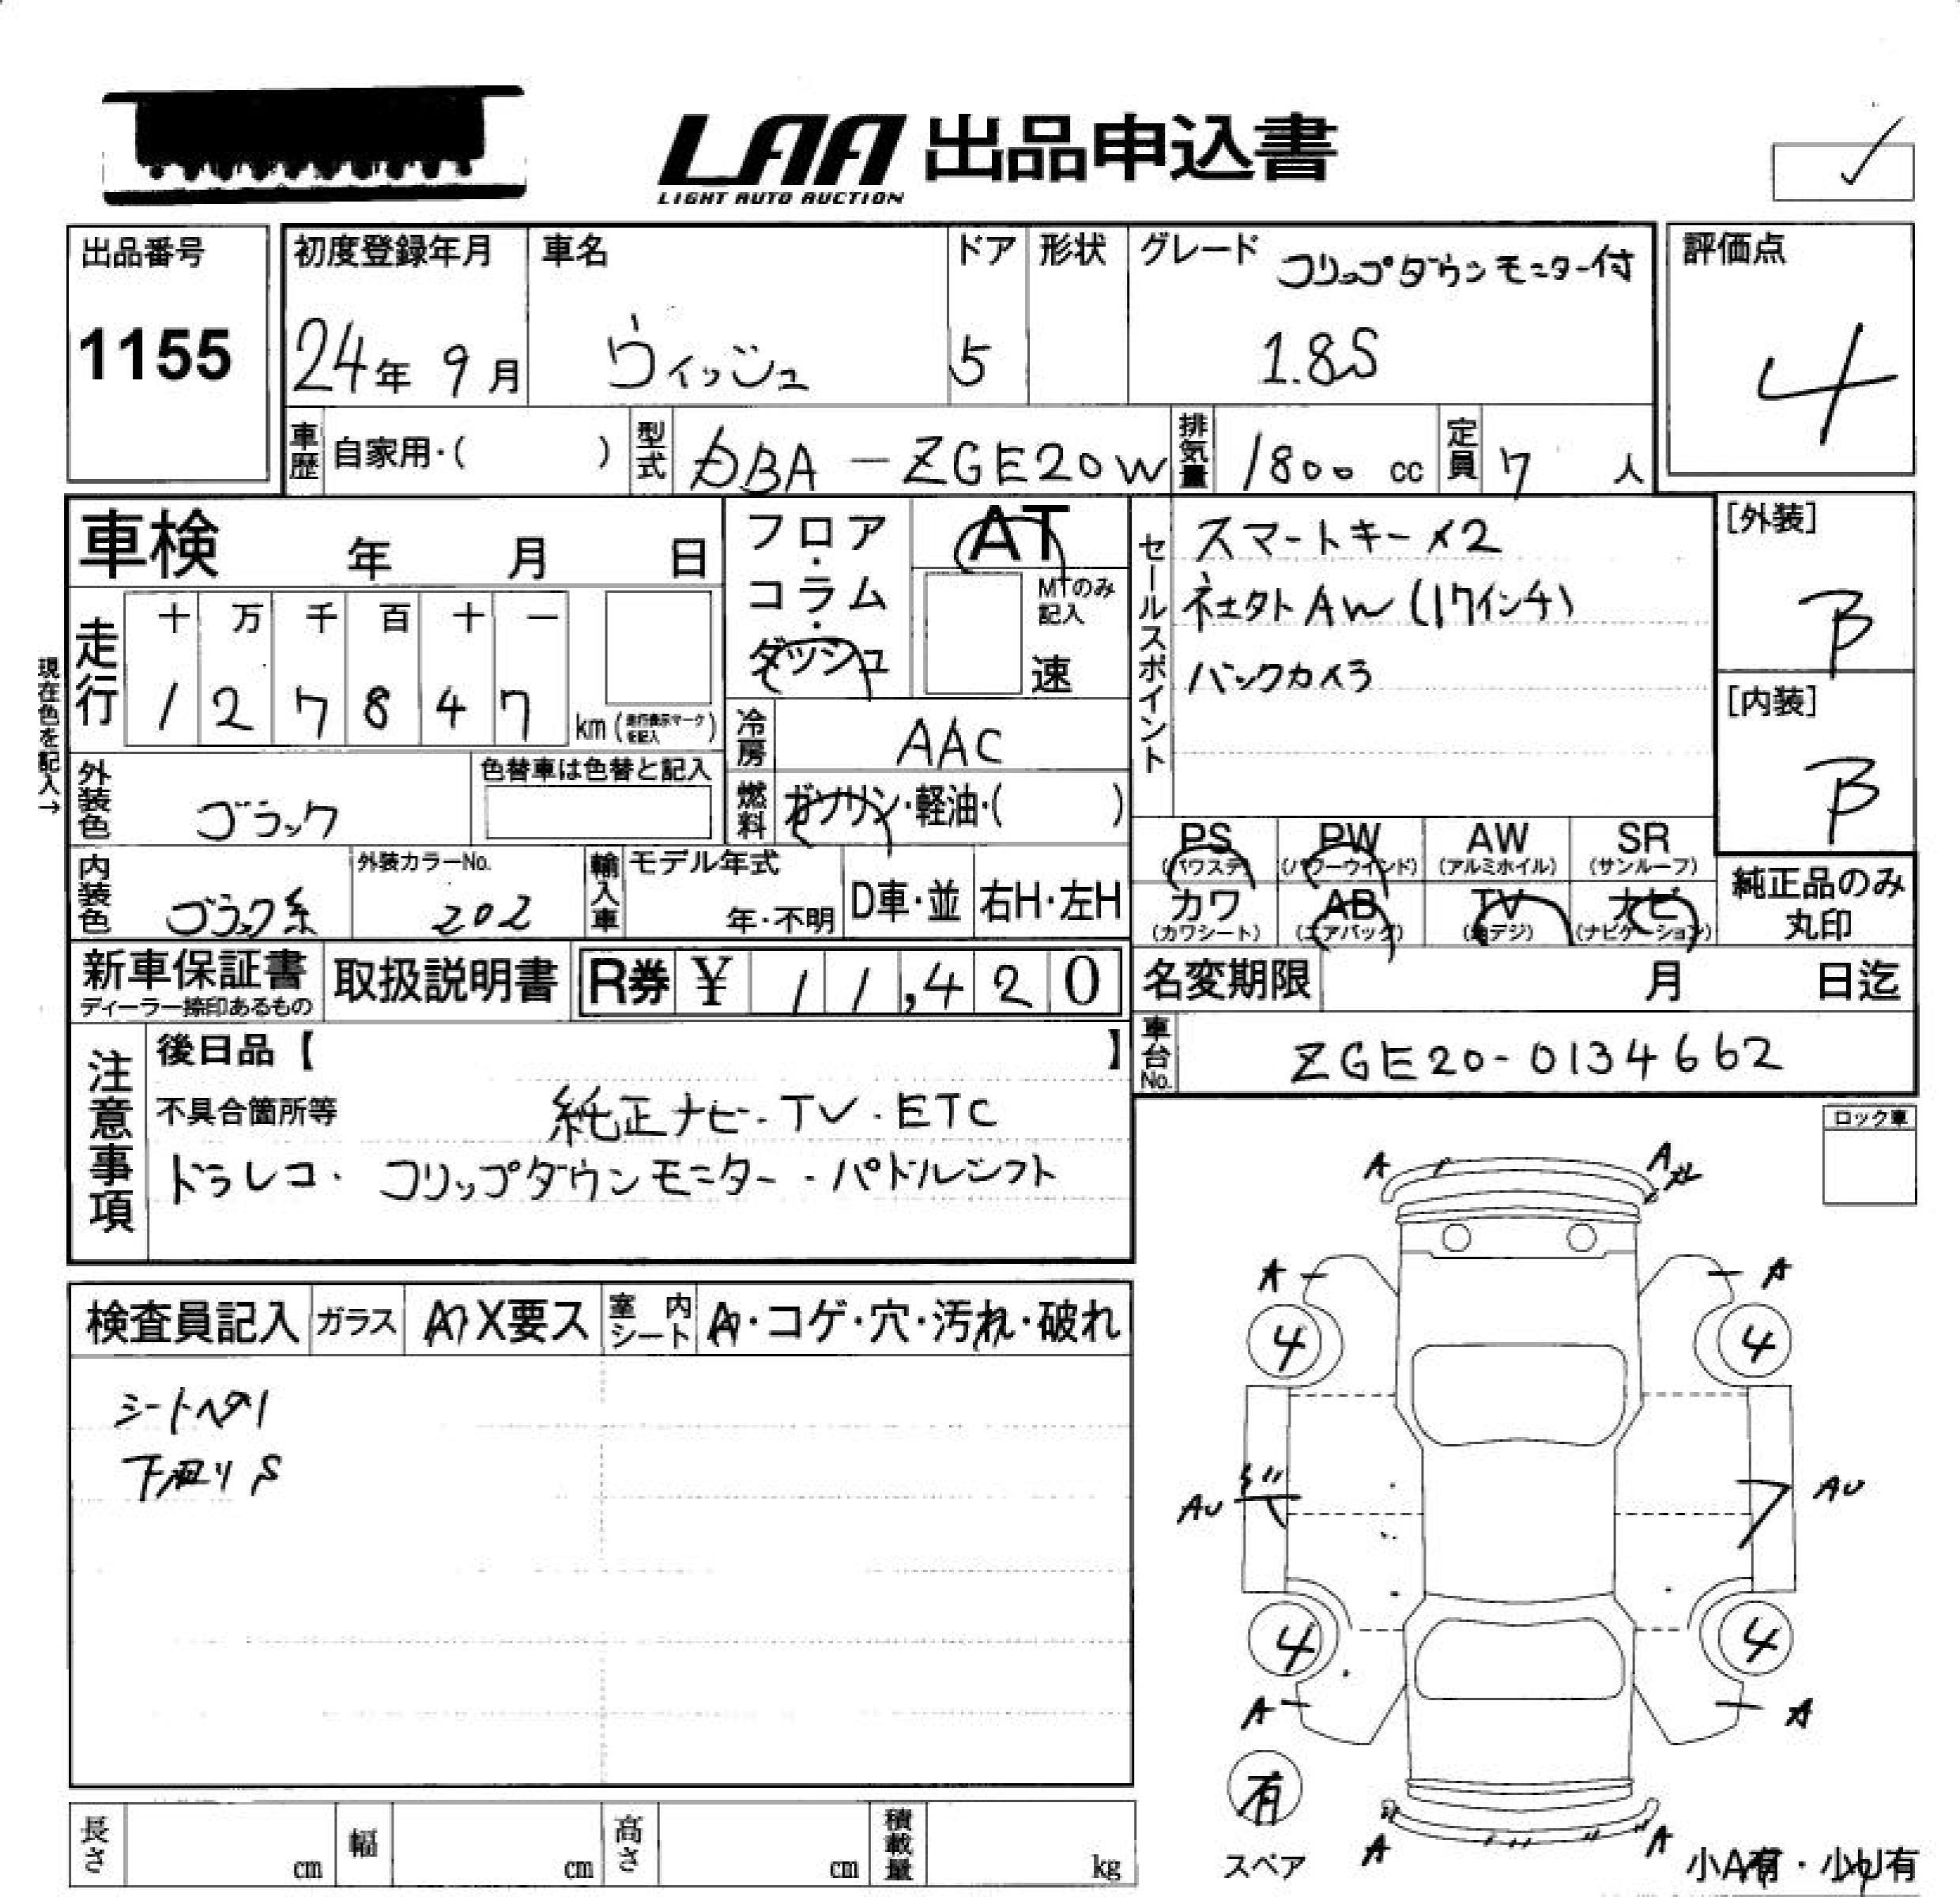 LAA 出品申込書
LIGHT AUTO AUCTION
出品番号
1155
初度登録年月
24年 9月
車名
ウィッシュ
ドア
5
形状
グレード
フリップダウンモニター付
1.8S
評価点
4
車歴 自家用・( )
型式 DBA-ZGE20W
排気量 1800 cc
定員 7 人
車検 年 月 日
走行 十 万 千 百 十 一
1 2 7 8 4 7 km (走行表示マークを記入)
現在色を記入→
フロア・コラム・ダッシュ
AT
MTのみ記入
速
冷房 AAC
燃料 ガソリン・軽油・( )
セールスポイント
スマートキー×2
社外AW(17インチ)
バックカメラ
[外装]
B
[内装]
B
外装色 ブラック
色替車は色替と記入
内装色 ブラック系
外装カラーNo. 202
輸入車 モデル年式 年・不明
D車・並 右H・左H
PS (パワステ) PW (パワーウインド) AW (アルミホイル) SR (サンルーフ)
カワ (カワシート) AB (エアバッグ) TV (地デジ) ナビ (ナビゲーション)
純正品のみ丸印
新車保証書
ディーラー捺印あるもの
取扱説明書
R券 ¥ 11,420
名変期限 月 日迄
車台No. ZGE20-0134662
注意事項
後日品【 】
不具合箇所等 純正ナビ・TV・ETC
ドラレコ・フリップダウンモニター・パドルシフト
ロック車
検査員記入 ガラス A X要ス 室内シート A・コゲ・穴・汚れ・破れ
シートヘタリ
下廻りS
A A
A A
4 4
AU AU
4 4
A A
有
スペア
A A
小A有・小U有
長さ cm 幅 cm 高さ cm 積載量 kg